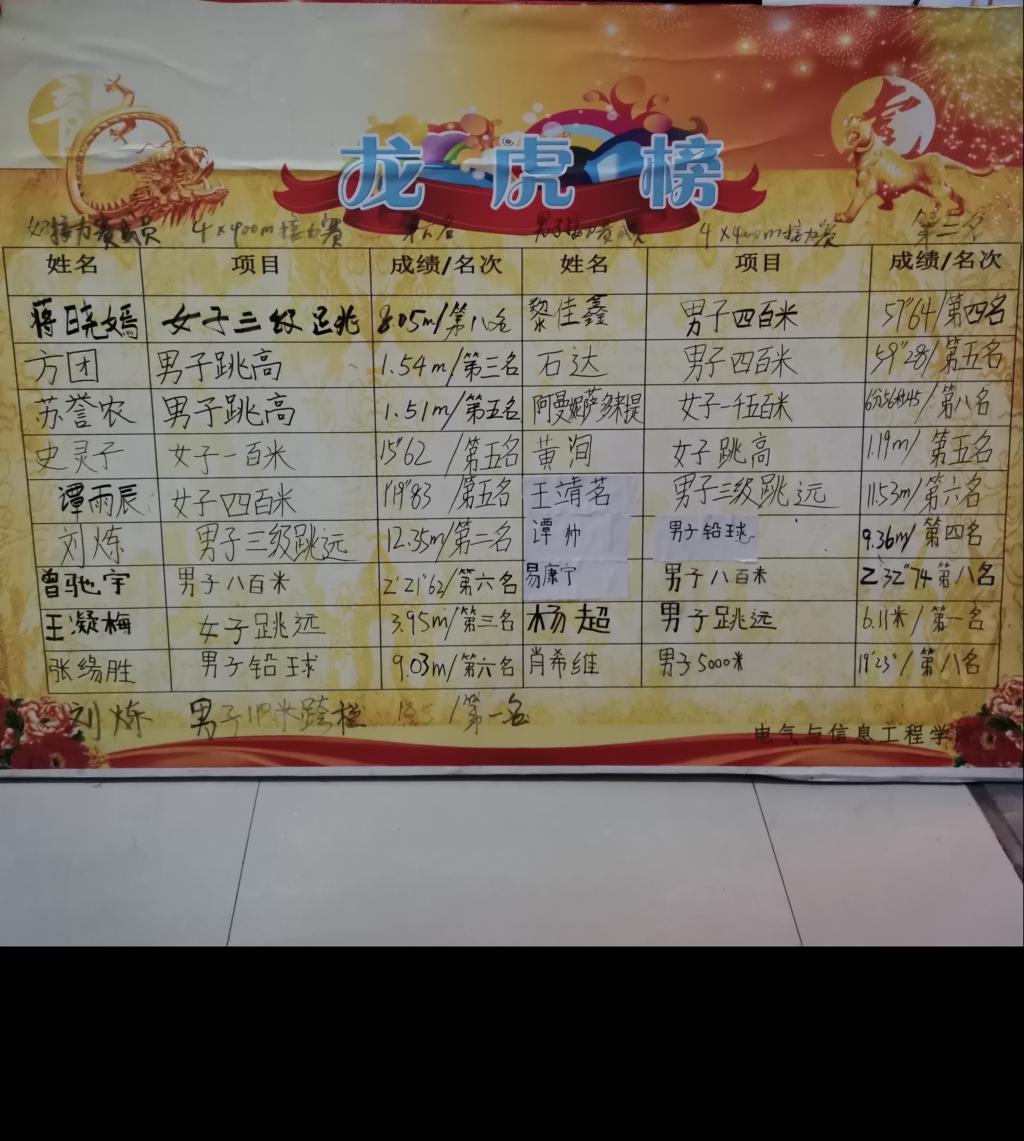 龙虎榜
接力赛成员 4×400m接力赛 第六名 男子接力赛成员 4×400m接力赛 第三名
姓名 项目 成绩/名次 姓名 项目 成绩/名次
蒋晓嫣 女子三级跳 8.05m/第八名 黎佳鑫 男子四百米 57"64/第四名
方团 男子跳高 1.54m/第三名 石达 男子四百米 59"28/第五名
苏誉农 男子跳高 1.51m/第五名 女子一千五百米 /第八名
史灵子 女子一百米 15"62/第五名 黄洵 女子跳高 1.19m/第五名
谭雨辰 女子四百米 1'19"83/第五名 王靖茗 男子三级跳远 11.53m/第六名
刘炼 男子三级跳远 12.35m/第二名 谭帅 男子铅球 9.36m/第四名
曾驰宇 男子八百米 2'21"62/第六名 易康宁 男子八百米 2'32"74第八名
王凝梅 女子跳远 3.95m/第三名 杨超 男子跳远 6.11米/第一名
张缘胜 男子铅球 9.03m/第六名 肖希维 男子5000米 19'23"/第八名
刘炼 男子110米跨栏 /第一名
电气与信息工程学院